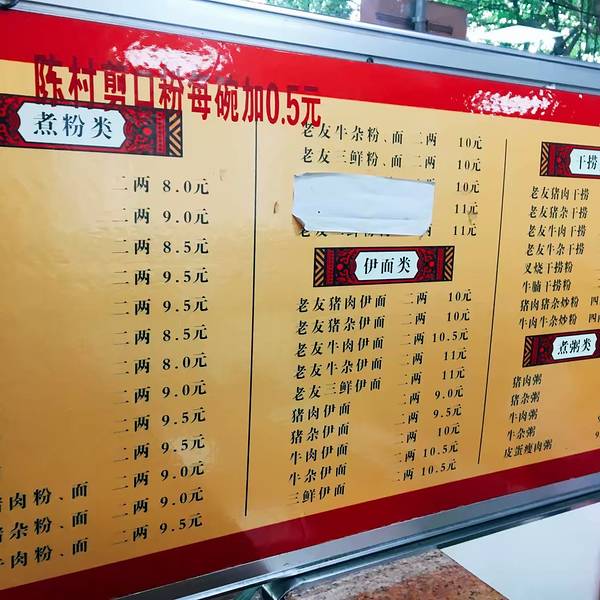 陈村剪口粉每碗加0.5元
煮粉类
二两 8.0元
二两 9.0元
二两 8.5元
二两 9.5元
二两 9.5元
二两 8.5元
二两 8.0元
二两 9.0元
二两 9.5元
二两 9.5元
猪肉粉、面 二两 9.0元
猪杂粉、面 二两 9.0元
牛肉粉、面 二两 9.5元
老友牛杂粉、面 二两 10元
老友三鲜粉、面 二两 10元
10元
11元
二两 11元
伊面类
老友猪肉伊面 二两 10元
老友猪杂伊面 二两 10元
老友牛肉伊面 二两 10.5元
老友牛杂伊面 二两 11元
老友三鲜伊面 二两 11元
猪肉伊面 二两 9.0元
猪杂伊面 二两 9.5元
牛肉伊面 二两 10元
牛杂伊面 二两 10.5元
三鲜伊面 二两 10.5元
干捞
老友猪肉干捞
老友猪杂干捞
老友牛肉干捞
老友牛杂干捞
叉烧干捞粉
牛腩干捞粉
猪肉猪杂炒粉 四
牛肉牛杂炒粉 四
煮粥类
猪肉粥
猪杂粥
牛肉粥
牛杂粥
皮蛋瘦肉粥